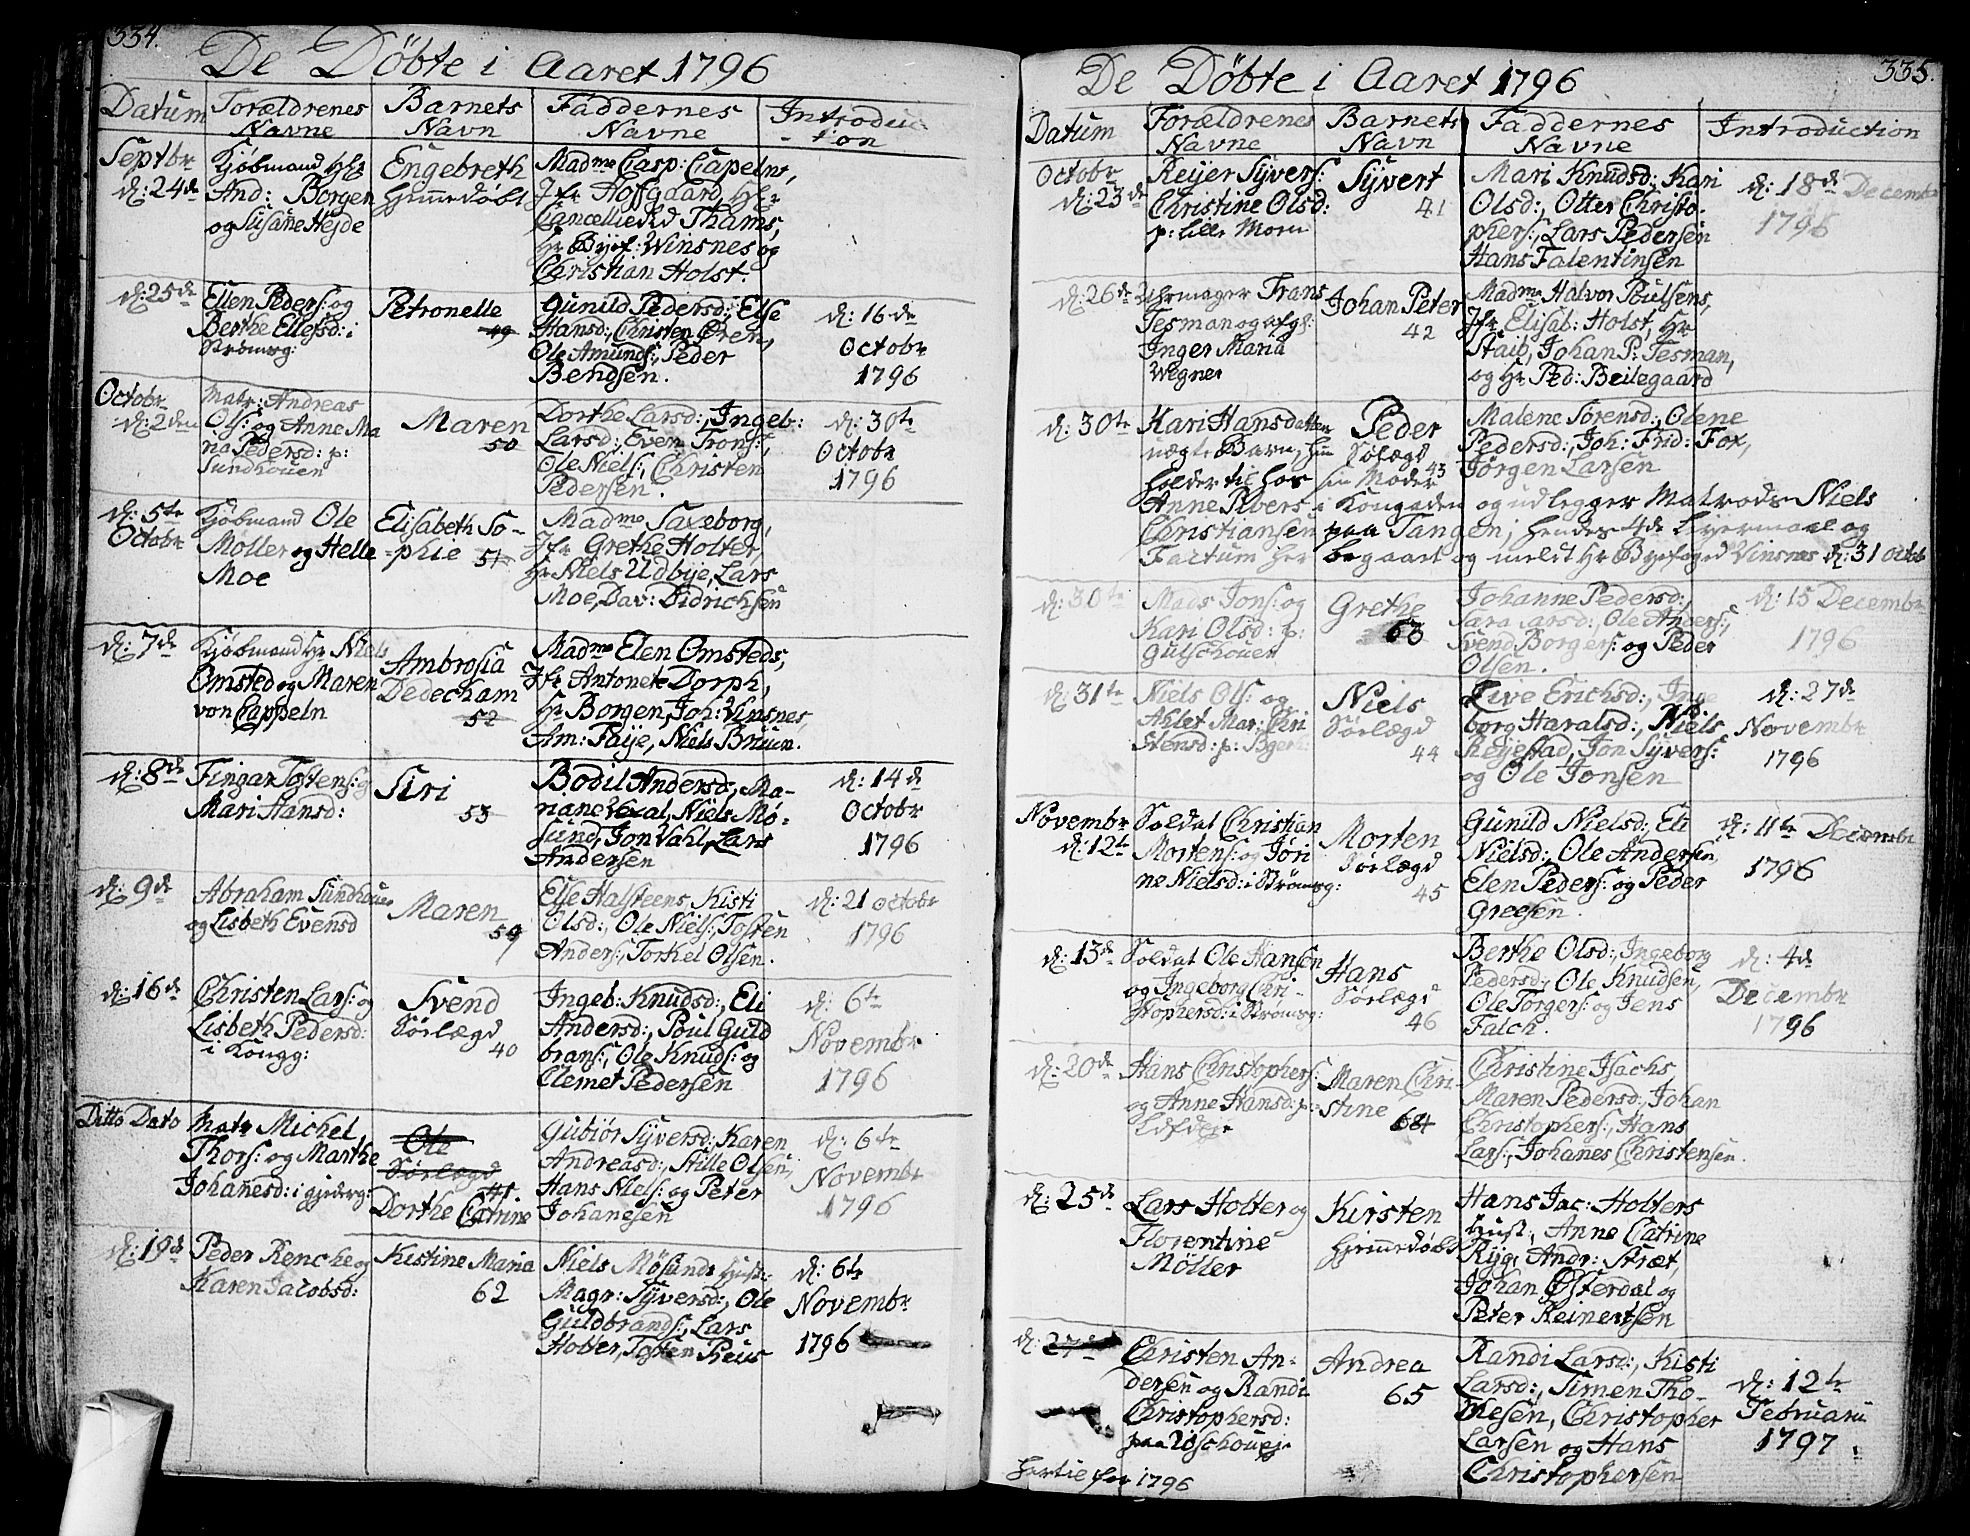 334.
De Döbte i Aaret 1796
Datum
Forældrenes
Navne
Barnets
Navn
Faddernes
Navne
Introduc
-tion
Septbr
d: 24de
Kjöbmand Hr
And: Borgen
og Susane Hejde
Engebreth
Hjemedöbt
Madme Casp: Capelns,
Jfr Hofgaard, Hr
Cancelliedid Thams,
Hr Byef: Winsnes og
Christian Holst.
d: 25de
Ellen Peders: og
Berthe Ellefsd: i
Strömsg:
Petronelle
49
Gunild Pedersd:, Else
Hansd:, Christen Oren,
Ole Amunds:, Peder
Bendsen.
d: 16de
Octobr
1796
Octobr
d: 2den
Matr: Andreas
Ols: og Anne Ma
ria Pedersd: p:
Sundhouen
Maren
50
Dorthe Larsd:, Ingeb:
Larsd:, Even Trons:,
Ole Niels:, Christen
Pedersen.
d: 30te
Octobr
1796
d: 5te
Octobr
Kjöbmand Ole
Moller og Helle
Moe
Elisabeth So-
-phie 51
Madme Saxeborg,
Jfr Grethe Holter,
Hr Niels Udbye, Lars
Moe, Dav: Didrichsen
d: 7de
Kjöbmand Hr Niels
Omsted og Maren
von Cappeln
Ambrosia
Dedecham
52
Madme Elen Omsteds,
Jfr Antonete Dorph,
Hr Borgen, Joh: Vinsnes,
Am: Paije, Niels Bruun.
d: 8de
Fingar Tostens: og
Mari Hansd:
Siri
53
Bodil Andersd:, Ma-
riane Vexal, Niels Mö-
sund, Jon Vahl, Lars
Andersen
d: 14de
Octobr
1796
d: 9de
Abraham Sundhouen
og Lisbeth Evensd
Maren
54
Else Halsteens, Kisti
Olsd:, Ole Niels:, Tosten
Anders:, Torkel Olsen.
d: 21 octobr
1796
d: 16de
Christen Lars: og
Lisbeth Pedersd:
i Kongg:
Svend
Sörlægd
40
Ingeb: Knudsd:, Eli
Andersd:, Poul Guld
brans:, Ole Knuds: og
Clemet Pedersen
d: 6te
Novembr
1796
Ditto Dato
Matr Michel
Thors: og Marthe
Johanesd: i gjederg:
Ole
Sörlægd
41
Dorthe Catrine
Gubiör Syversd:, Karen
Andreasd:, Stille Olsen,
Hans Niels: og Peter
Johanesen
d: 6te
Novembr
1796
d: 19de
Peder Rencke og
Karen Jacobsd:
Kistine Maria
62
Niels Mösunds Hust:
Magr: Syversd:, Ole
Guldbrands:, Lars
Holter, Tosten Preus
d: 6te
Novembr
1796
335.
De Döbte i Aaret 1796
Datum
Forældrenes
Navne
Barnets
Navn
Faddernes
Navne
Introduction
Octobr
d: 23de
Reijer Syvers:
Christine Olsd:
p: Lille Moen
Syvert
41
Mari Knudsd:, Kari
Olsd:, Otter Christo-
phers:, Lars Pedersen
Hans Falentinsen
d: 18de Decembr
1796
d: 26de
Uhrmager Frans
Tesman og afgl:
Inger Maria
Wegner
Johan Peter
42
Madme Halvor Poulsens,
Jfr Elisab: Holst, Hr
Staib, Johan P: Tesman,
og Hr Ped: Beilegaard
d: 30te
Kari Hansdatter
uægte Barn, hun
holder til hos
Peder
Sölægd
43
sin Moder
Malene Sörensd:, Olene
Pedersd:, Joh: Frid: Fox,
Jörgen Larsen
Anne Pibers i Kongaden og udlegger Matrods Niels
Christiansen paa Tangen; hendes 4de Leiermaal og
Factum her begaaet og meldt Hr Byefoged Vinsnes d: 31 octobr
d: 30te
Mads Jons: og
Kari Olsd: p:
Gulschouen
Grethe
63
Johanne Pedersd:,
Sara Larsd:, Ole Anders:,
Svend Borgers: og Peder
Olsen.
d: 15 Decembr
1796
d: 31te
Niels Ols: og
Ahlet Mar: Chri
stensd: p:
Niels
Sörlægd
44
Live Erichsd:, Inge
borg Haralsd:, Niels
Reyestad, Jon Syvers:
og Ole Jonsen
d: 27de
Novembr
1796
Novembr
d: 12te
Soldat Christian
Mortens: og Jöri
ne Nielsd: i Strömsg:
Morten
Sörlægd
45
Gunild Nielsd:, Eli
Nielsd:, Ole Andersen,
Elen Peders: og Peder
Greesen.
d: 11te Decembr
1796
d: 13de
Soldat Ole Hansen
og Ingeborg Chri-
stophersd: i Strömsg:
Hans
Sörlægd
46
Berthe Olsd:, Ingeborg
Pedersd:, Ole Knudsen,
Ole Torgers: og Jens
Falch.
d: 4de
Decembr
1796
d: 20de
Hans Christophers:
og Anne Hansd: p:
Maren Chri-
stine 64
Christine Isachs
Maren Pedersd:, Johan
Christophers:, Hans
Lars:, Johanes Christensen.
d: 25de
Lars Holter og
Florentine
Möller
Kirsten
Hjemedöbt
Hans Jac: Holters
Hust:, Anne Catrine
Ryg, Andr: Stræt,
Johan Österdal og
Peter Reinertsen
d: 27de
Christen An-
dersen og Randi
Christophersd:
paa
Andrea
65
Randi Larsd:, Kisti
Larsd:, Simen Tho-
mesen, Christopher
Larsen og Hans
Christophersen
d: 12te
Februarii
1797.
hertil for 1796